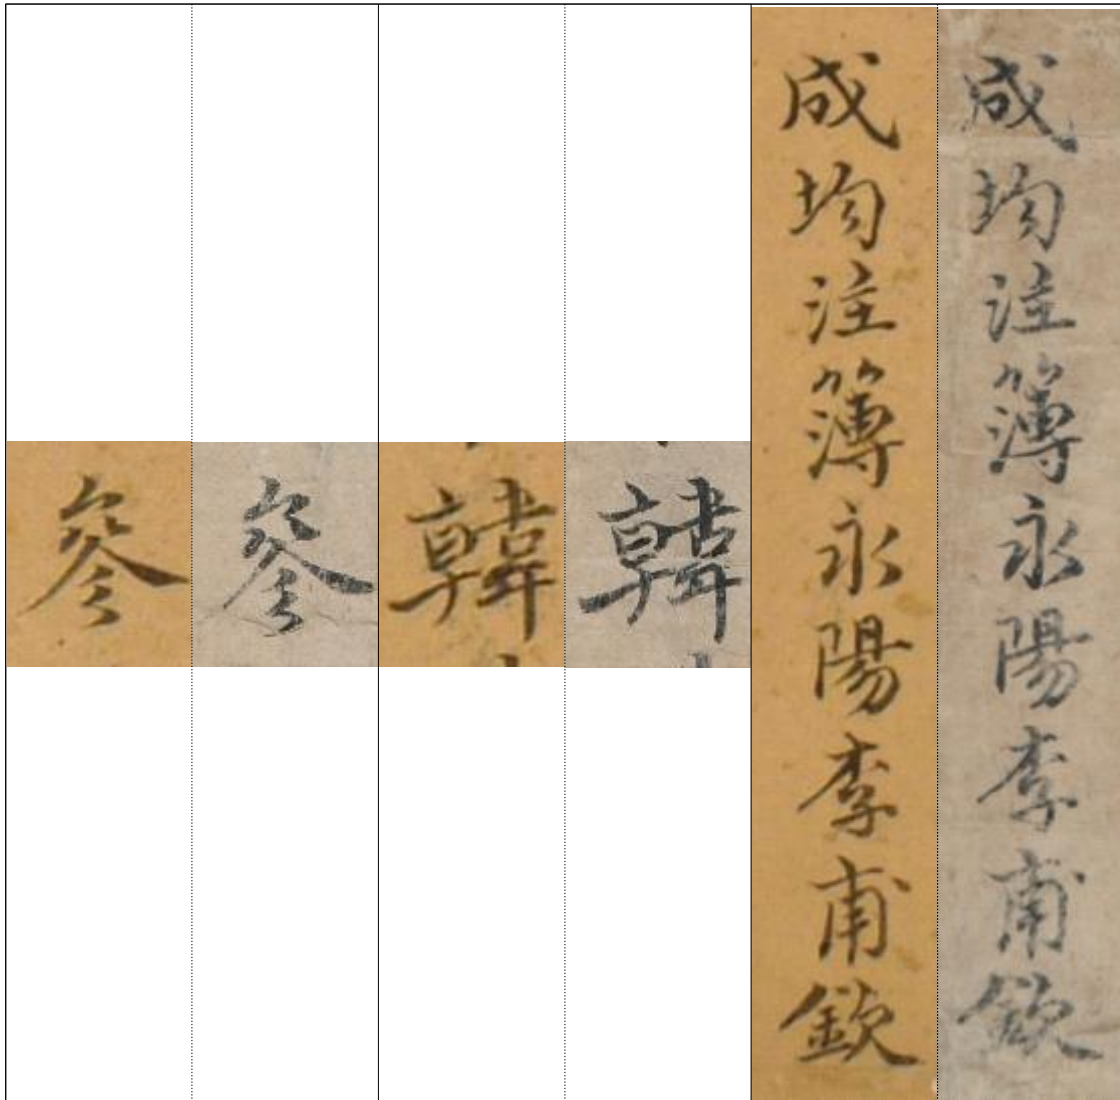 成均注簿永陽李甫欽
成均注簿永陽李甫欽
韓
韓
參
參